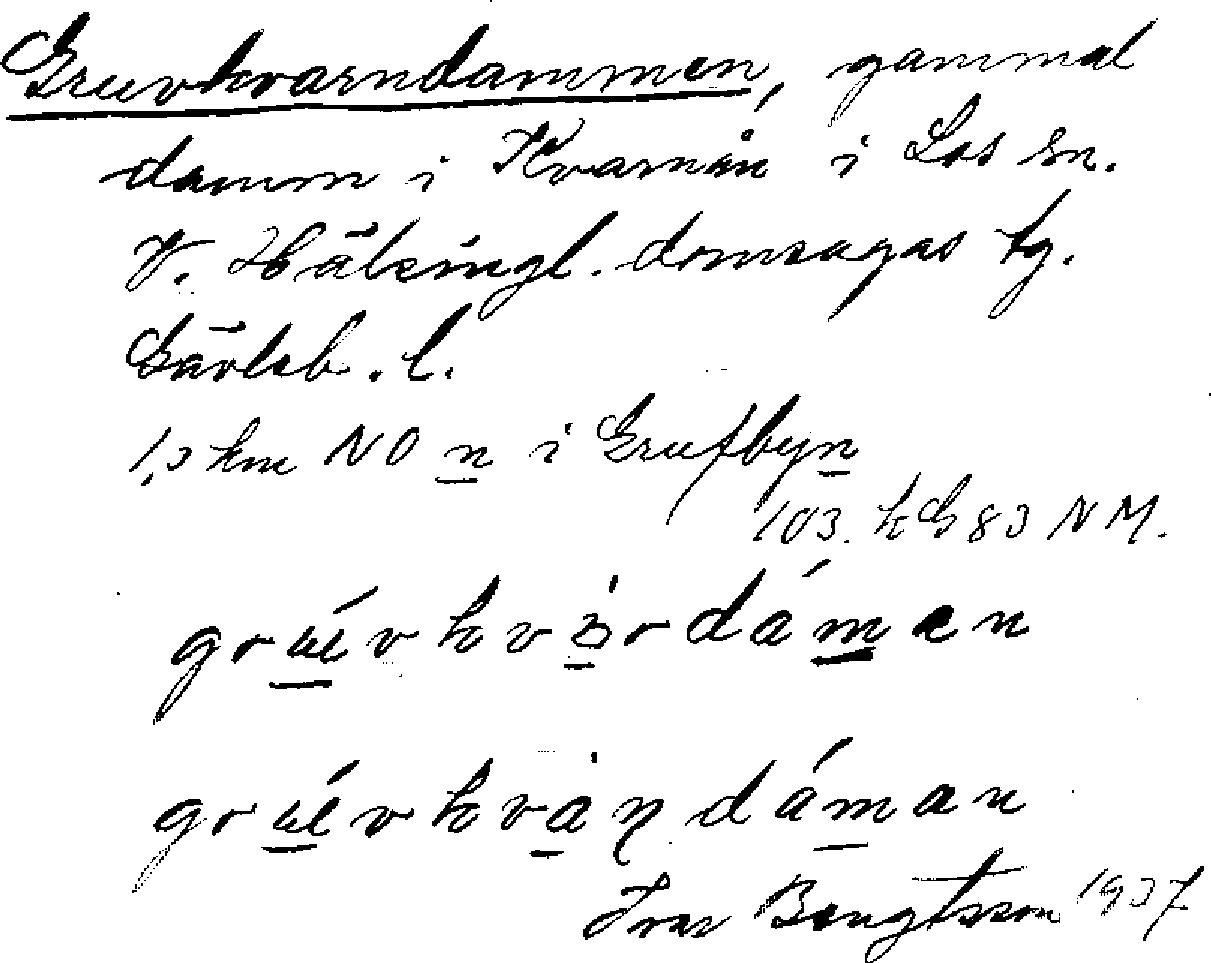 Gruvkvarndammen, gammal
damm i Kvarnån i Los sn.
V. Hälsingl. domsagas tg.
Gävleb. l.
1,3 km NO n i Grufbyn
103. k G 83 NM.
Ivar Bengtsson 1937